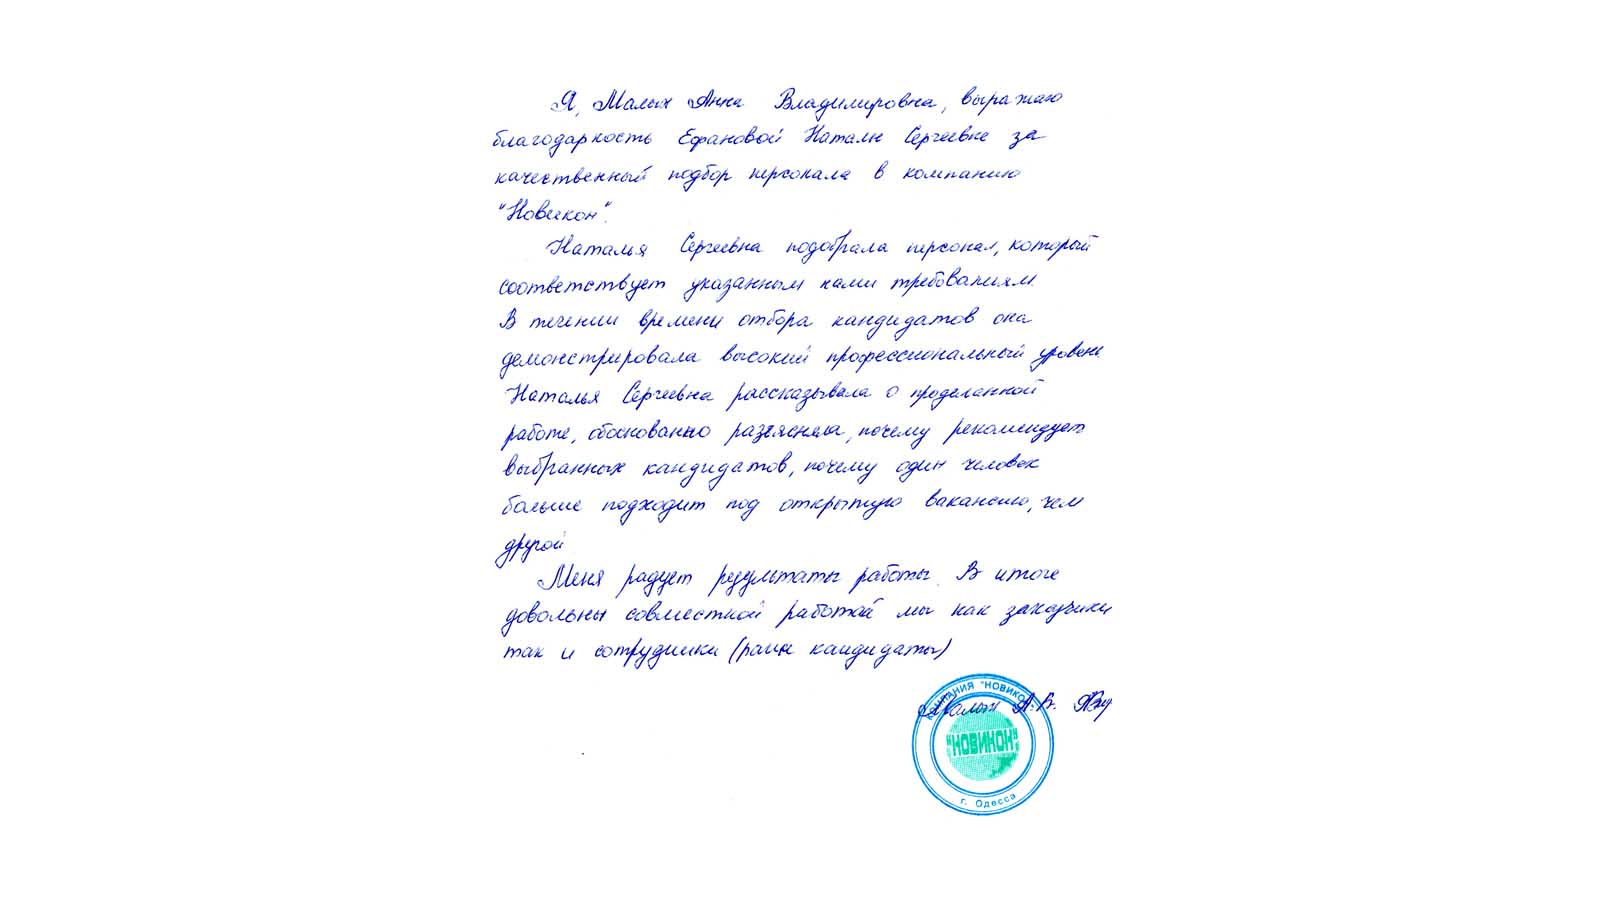 Я, Малых Анна Владимировна, выражаю
благодарность Ефановой Наталье Сергеевне за
качественный подбор персонала в компанию
"Новикон".
Наталья Сергеевна подобрала персонал, который
соответствует указанным нами требованиям.
В течении времени отбора кандидатов она
демонстрировала высокий профессиональный уровень
Наталья Сергеевна рассказывала о проделанной
работе, обоснованно разъясняла, почему рекомендует
выбранных кандидатов, почему один человек
больше подходит под открытую вакансию, чем
другой.
Меня радует результаты работы. В итоге
довольны совместной работой мы как заказчики
так и сотрудники (ранее кандидаты)
Малых А.В.
КОМПАНИЯ "НОВИКОН"
"НОВИКОН"
г. Одесса